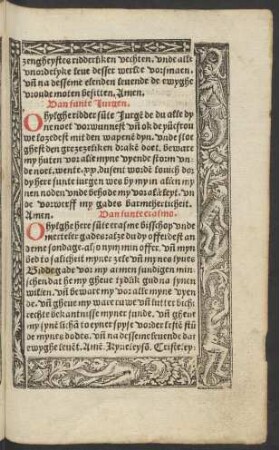 zengheystes ridderliken vechten. vnde alle
vnordelyke leue desser werlde vorsmaen.
vñ na desseme elenden leuende de ewyghe
vroude moten besitten. Amen.
Van sunte Jurgen.
O hylghe ridder sūte Jurgē de du alle dy
ne noet vorwunnest vñ ok de yūcfrou
we lozedest mit den wapenē dyn. vnde sloe
ghest den grezeliken drakē doet. beware
my huten vor alle myne vyende storm vn
de noet. wente .xxv. dusent worde souich dor
dy here sunte iurgen wes by my in allen my
nen noden vnde behode my vor alle leyt. vn
de vorwerff my gades barmeherticheit.
Amen. Van sunte erasmo.
O hylghe here sūte erasme bisschop vnde
merteler gades alze du dy offerdest an
deme sondage. also nym min offer. vñ myn
bed to salicheit myner zele vñ mynes lyues
Bidde gade vor my armen sundigen min
schen dat he my gheue tydlik gud na synen
willen. vñ beware my vor alle myne vyen
de. vñ gheue my ware ruwe vñ lutter bich
rechte bekantnisse myner sunde. vñ gheue
my synē lichā to eyner spyse vor der lesten stū
de mynes dodes. vñ na desseme leuende dat
ewyghe leuēt. Amē. Kyrieleysō. Christe ey